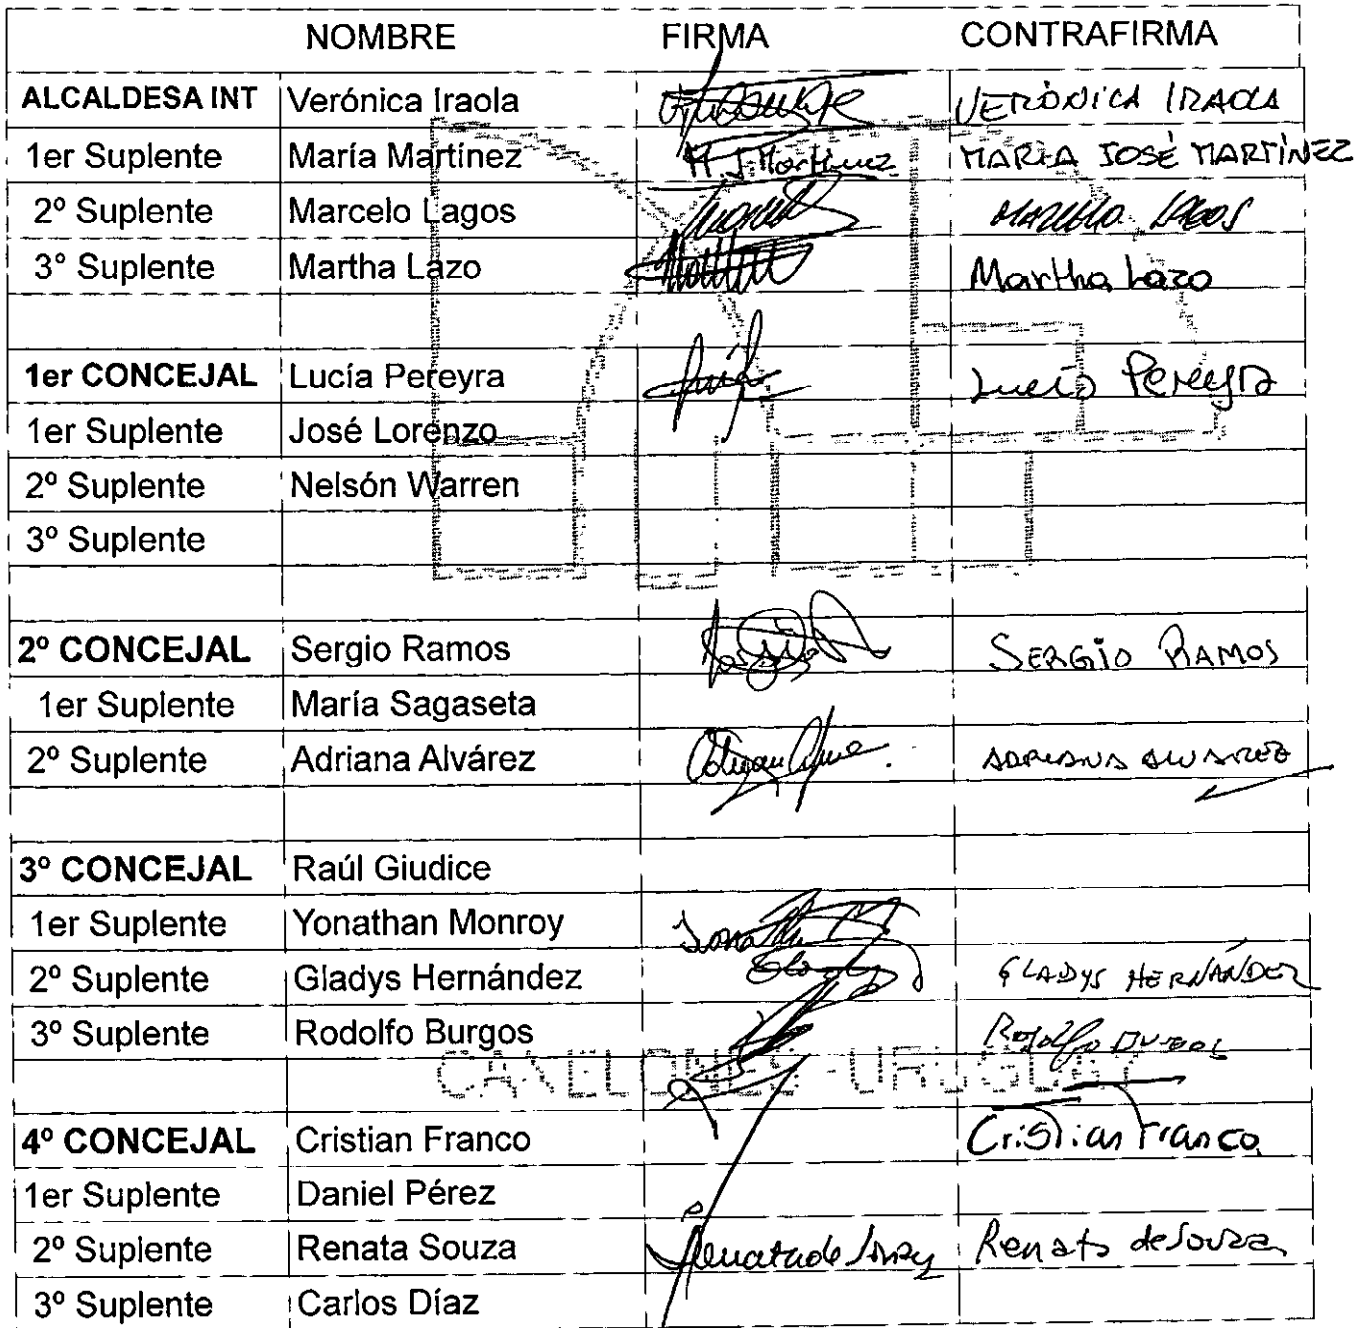 NOMBRE FIRMA CONTRAFIRMA
ALCALDESA INT Verónica Iraola VERÓNICA IRAOLA
1er Suplente María Martínez M. J. Martínez MARÍA JOSÉ MARTÍNEZ
2º Suplente Marcelo Lagos MARCELO LAGOS
3° Suplente Martha Lazo Martha Lazo
1er CONCEJAL Lucía Pereyra Lucía Pereyra
1er Suplente José Lorenzo
2º Suplente Nelsón Warren
3º Suplente
2º CONCEJAL Sergio Ramos SERGIO RAMOS
1er Suplente María Sagaseta
2º Suplente Adriana Alvárez ADRIANA ALVAREZ
3º CONCEJAL Raúl Giudice
1er Suplente Yonathan Monroy
2º Suplente Gladys Hernández Gladys GLADYS HERNÁNDEZ
3º Suplente Rodolfo Burgos Rodolfo
CANELONES - URUGUAY
4º CONCEJAL Cristian Franco Cristian Franco
1er Suplente Daniel Pérez
2º Suplente Renata Souza Renata de Souza Renata de Souza
3º Suplente Carlos Díaz